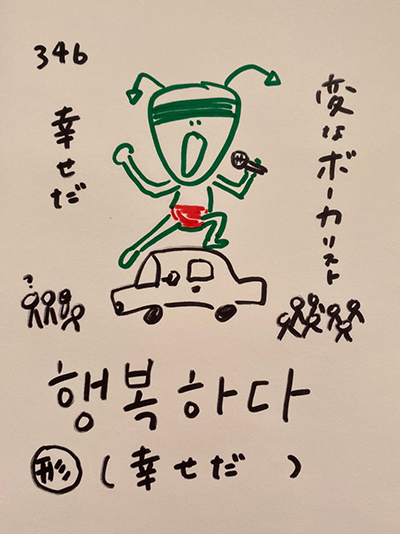 346
幸せだ
変なボーカリスト
?
행복하다
形 (幸せだ )